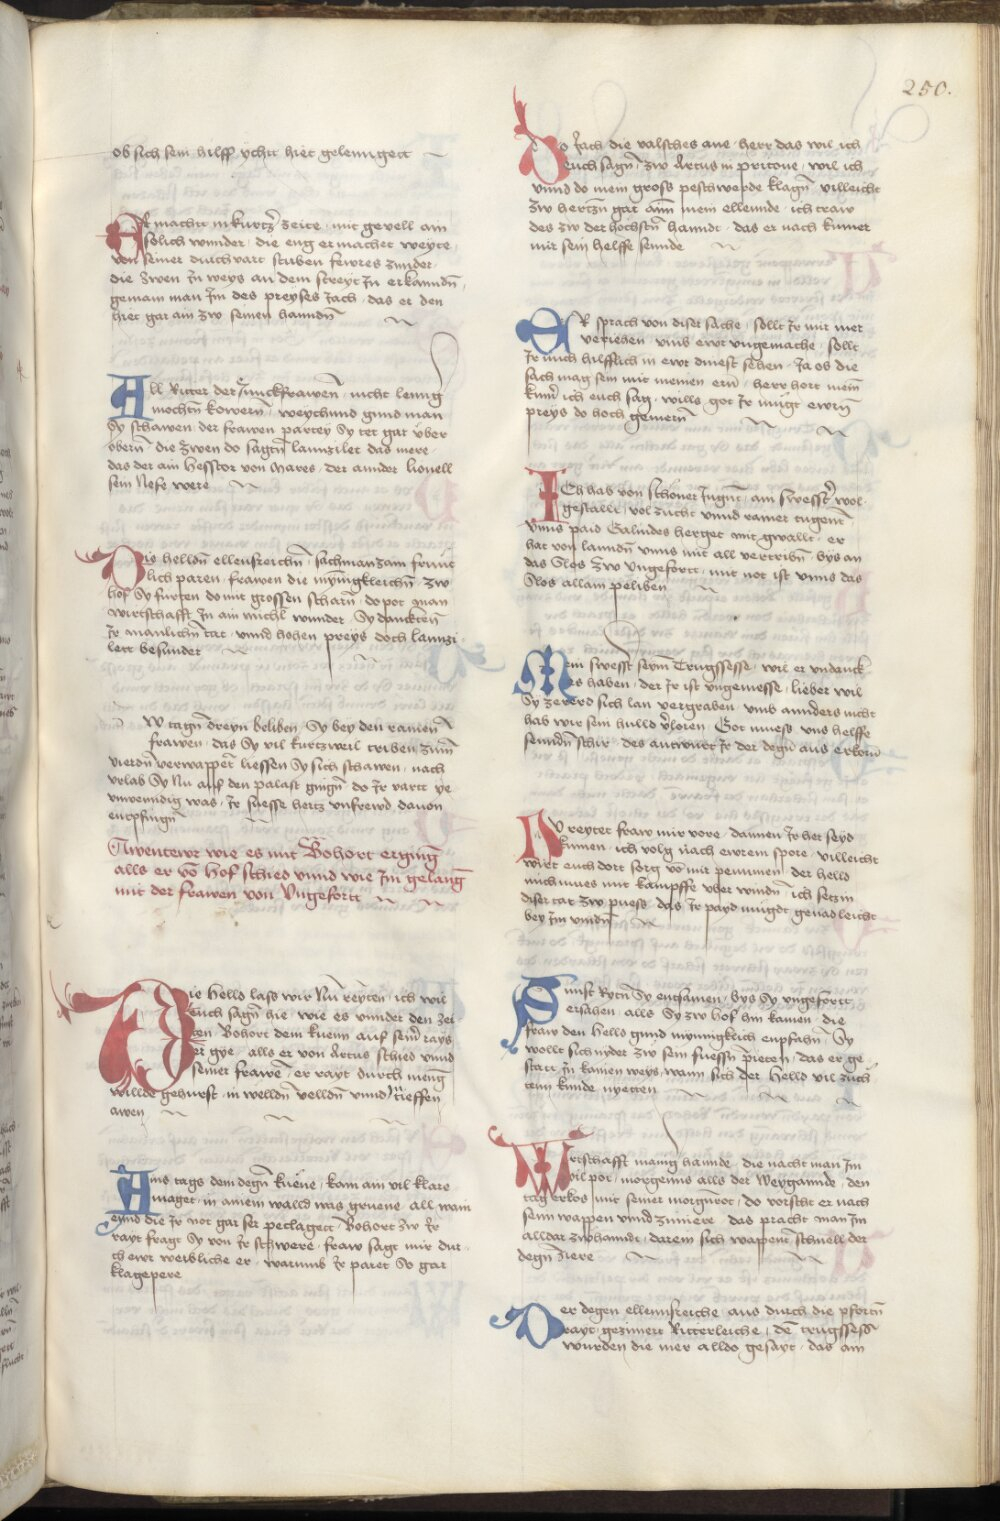 250.
ob sich sein hilff ycht hiet gelenngert
ER macht in kurtzer zeite · mit gevell ain
solich wunder · die eng er machet weyte ·
von seiner durchvart stuben fewres zunder ·
die zwen in weys an dem streyt Jn erkanndn̄ ·
gemain man Jm des preyses Jach · das er den
hiet gar ain zw seinen hanndn̄
All Ritter der Junckfrawen · nicht lenng
mochtn̄ kowern̄ · weychund gund man
Sy schawen · der frawen partey Sy tet gar vber
obern̄ · die zwen do sagtn̄ lannzilet das mere ·
das der ain Hesstor von Mares · der annder lionell
sein Nefe were
Die helldn̄ ellennsreichn̄ · sach man zam frünt
lich paren · frawen die mynigkleichn̄ · zw
hof Sy fuͤrten do mit grossen scharn̄ · do pot man
wirtschafft Jn ain michl wunder · Sy danckten̄
Jr manlichn̄ tat · vnnd hohen preys doch lannzi
lett besunder
W tagn̄ dreyn beliben · Sy bey den rainen̄
frawen · das Sy vil kurtzweil triben zum̄
vierdn̄ verwappet liessen Sy sich schawen · nach
vrlab Sy Nu auf den palast gingn̄ do Jr vart ye
vnwenndig was · Jr suesse hertz vnfrewd dauon
entpfingn̄
Awentewr wie es mit Bohort erging
alls er võ hof schied vnnd wie Jm gelang
mit der frawen von Vngefortt
Die Helld lass wir Nu reyten · ich wil
euch sagn̄ hie · wie es vnnder den zei
ten Bohort dem kuenn auf seiner rays
er gye · alls er von Artus schied vnnd
seiner frawẽ · er rayt durch menig
willde gehurst · in welldn̄ velldn̄ vnnd in tieffen
awen
Ains tags dem degn̄ kuene · kam ain vil klare
maget · in ainem walld was gruene · all wain
eynnd die Jr not gar ser peclagett · Bohort zw Jr
rayt fragt Sy von Jr schwere · fraw sagt mir dur ·
ch ewr weibliche er · warumb Jr paret So gar
klagepere
Do Jach die valsches ane · herr das wil ich
euch sagn̄ · zw Artus in pritone · wil ich
vnnd do mein gross peschwerde klagn̄ villeicht
zw hertzn̄ gat aim̄ mein ellennde · ich traw
des zw der hochstn̄ hanndt · das er nach kumer
mir sein helffe sennde
ER sprach von diser sache · sollt Jr mir niet
veriehen · vmb ewr vngemache · sollt
Jr mich hilfflich in ewr dinest sehen · Ja ob die
sach mag sein mit meinen ern̄ · herr hort mein̄
kumer ich euch sag · wills got Jr mügt ewrn̄
preys do hoch gemern̄
ICh hab von schoner Jugnt · ain swesster wol ·
gestallt · vol zucht vnnd rainer tugennt
vnns paid Galindes herget mit gwallt · er
hat von lanndn̄ vnns mit all vertribn̄ · bys an
das Slos zw Vngefortt · mit not ist vnns das
Slos allain peliben
Mein swesster seym̄ Trugssesse · wil er vndanck
es haben · der Jr ist vngenesse · lieber wil
Sy zererd sich lan vergraben · vmb annders nicht
hab wir sein hulld verloren · Got muess vns helffe
sennden schir · des antwurt Jr der degn̄ aus erkorn̄
NV reytet fraw mir vore · dannen Jr her seyd
kumen · ich volg nach ewrem spore · villeicht
wirt euch dort sorg võ mir penumen · der helld
mich mues mit kampffe vber windn̄ · ich setz in
diser tat zw puess · das Jr payd mügdt genad leicht
bey Jm vindn̄
Sunst Rytn̄ Sy entsamen · bys Sy vngefortt
ersahen · alls Sy zw hof hin kamen · die
fraw den Helld gund mynnigklich enpfahn̄ · Sy
wollt sich nyder zw sein fuessn̄ pieten · das er ge ·
statt in kainen weys, wann sich der Helld vil zuch
tem kunde nyetten
Wirtschafft manig hannde · die nacht man Jm
vil pot · morgenns alls der Weygannde · den
tag erkos mit seiner morgnrot · do vorscht er nach
seinn wappen vnnd zimiere · das pracht man Jm
alldar zwhanndt · darein sich wappent schnell der
degn̄ ziere
Der degen ellennsreiche · aus durch die pfortn̄
rayt · gezimiert Ritterleiche · dẽ trugssess
wurden die mer alldo gesayt · das ain